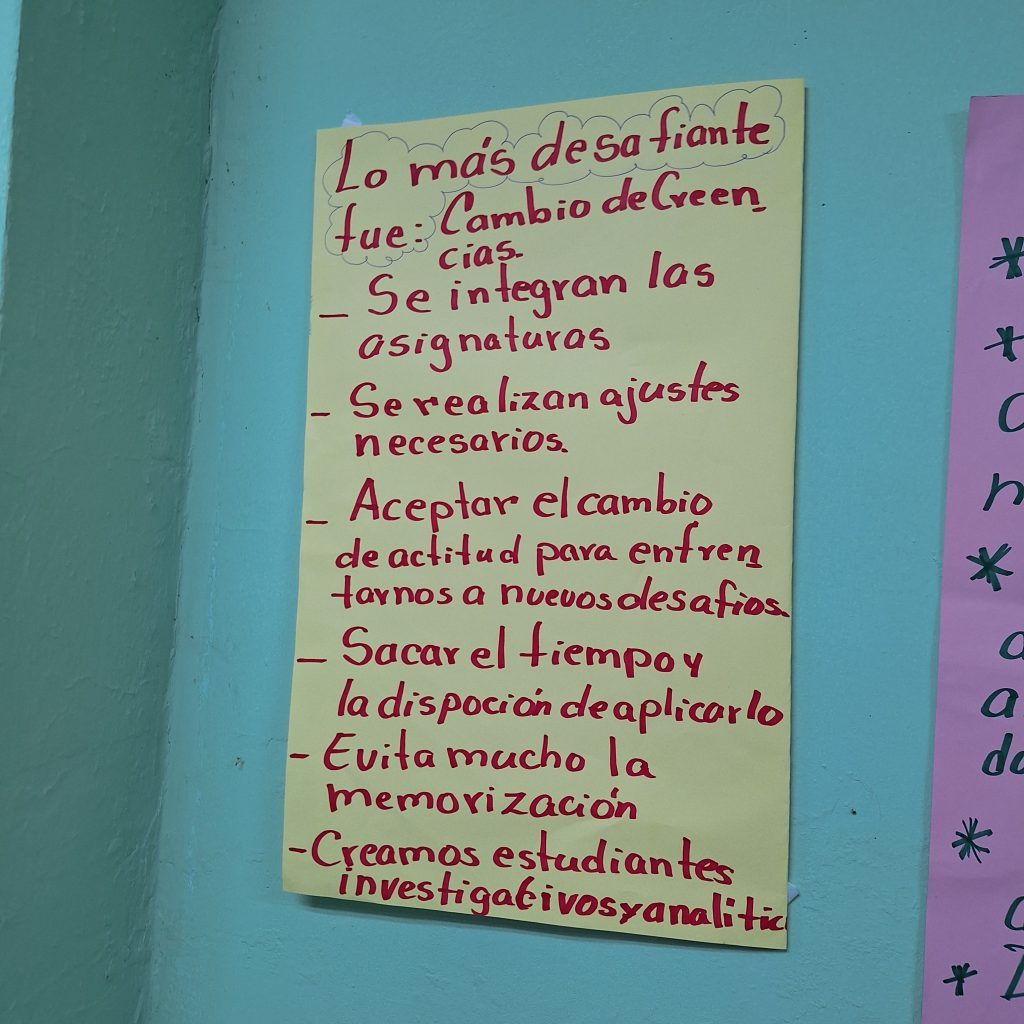 Lo más desafiante
fue: Cambio de Creen
cias.
_ Se integran las
asignaturas
_ Se realizan ajustes
necesarios.
_ Aceptar el cambio
de actitud para enfren
tarnos a nuevos desafios.
_ Sacar el tiempo y
la dispoción de aplicarlo
- Evita mucho la
memorización
- Creamos estudiantes
investigativos y analitic